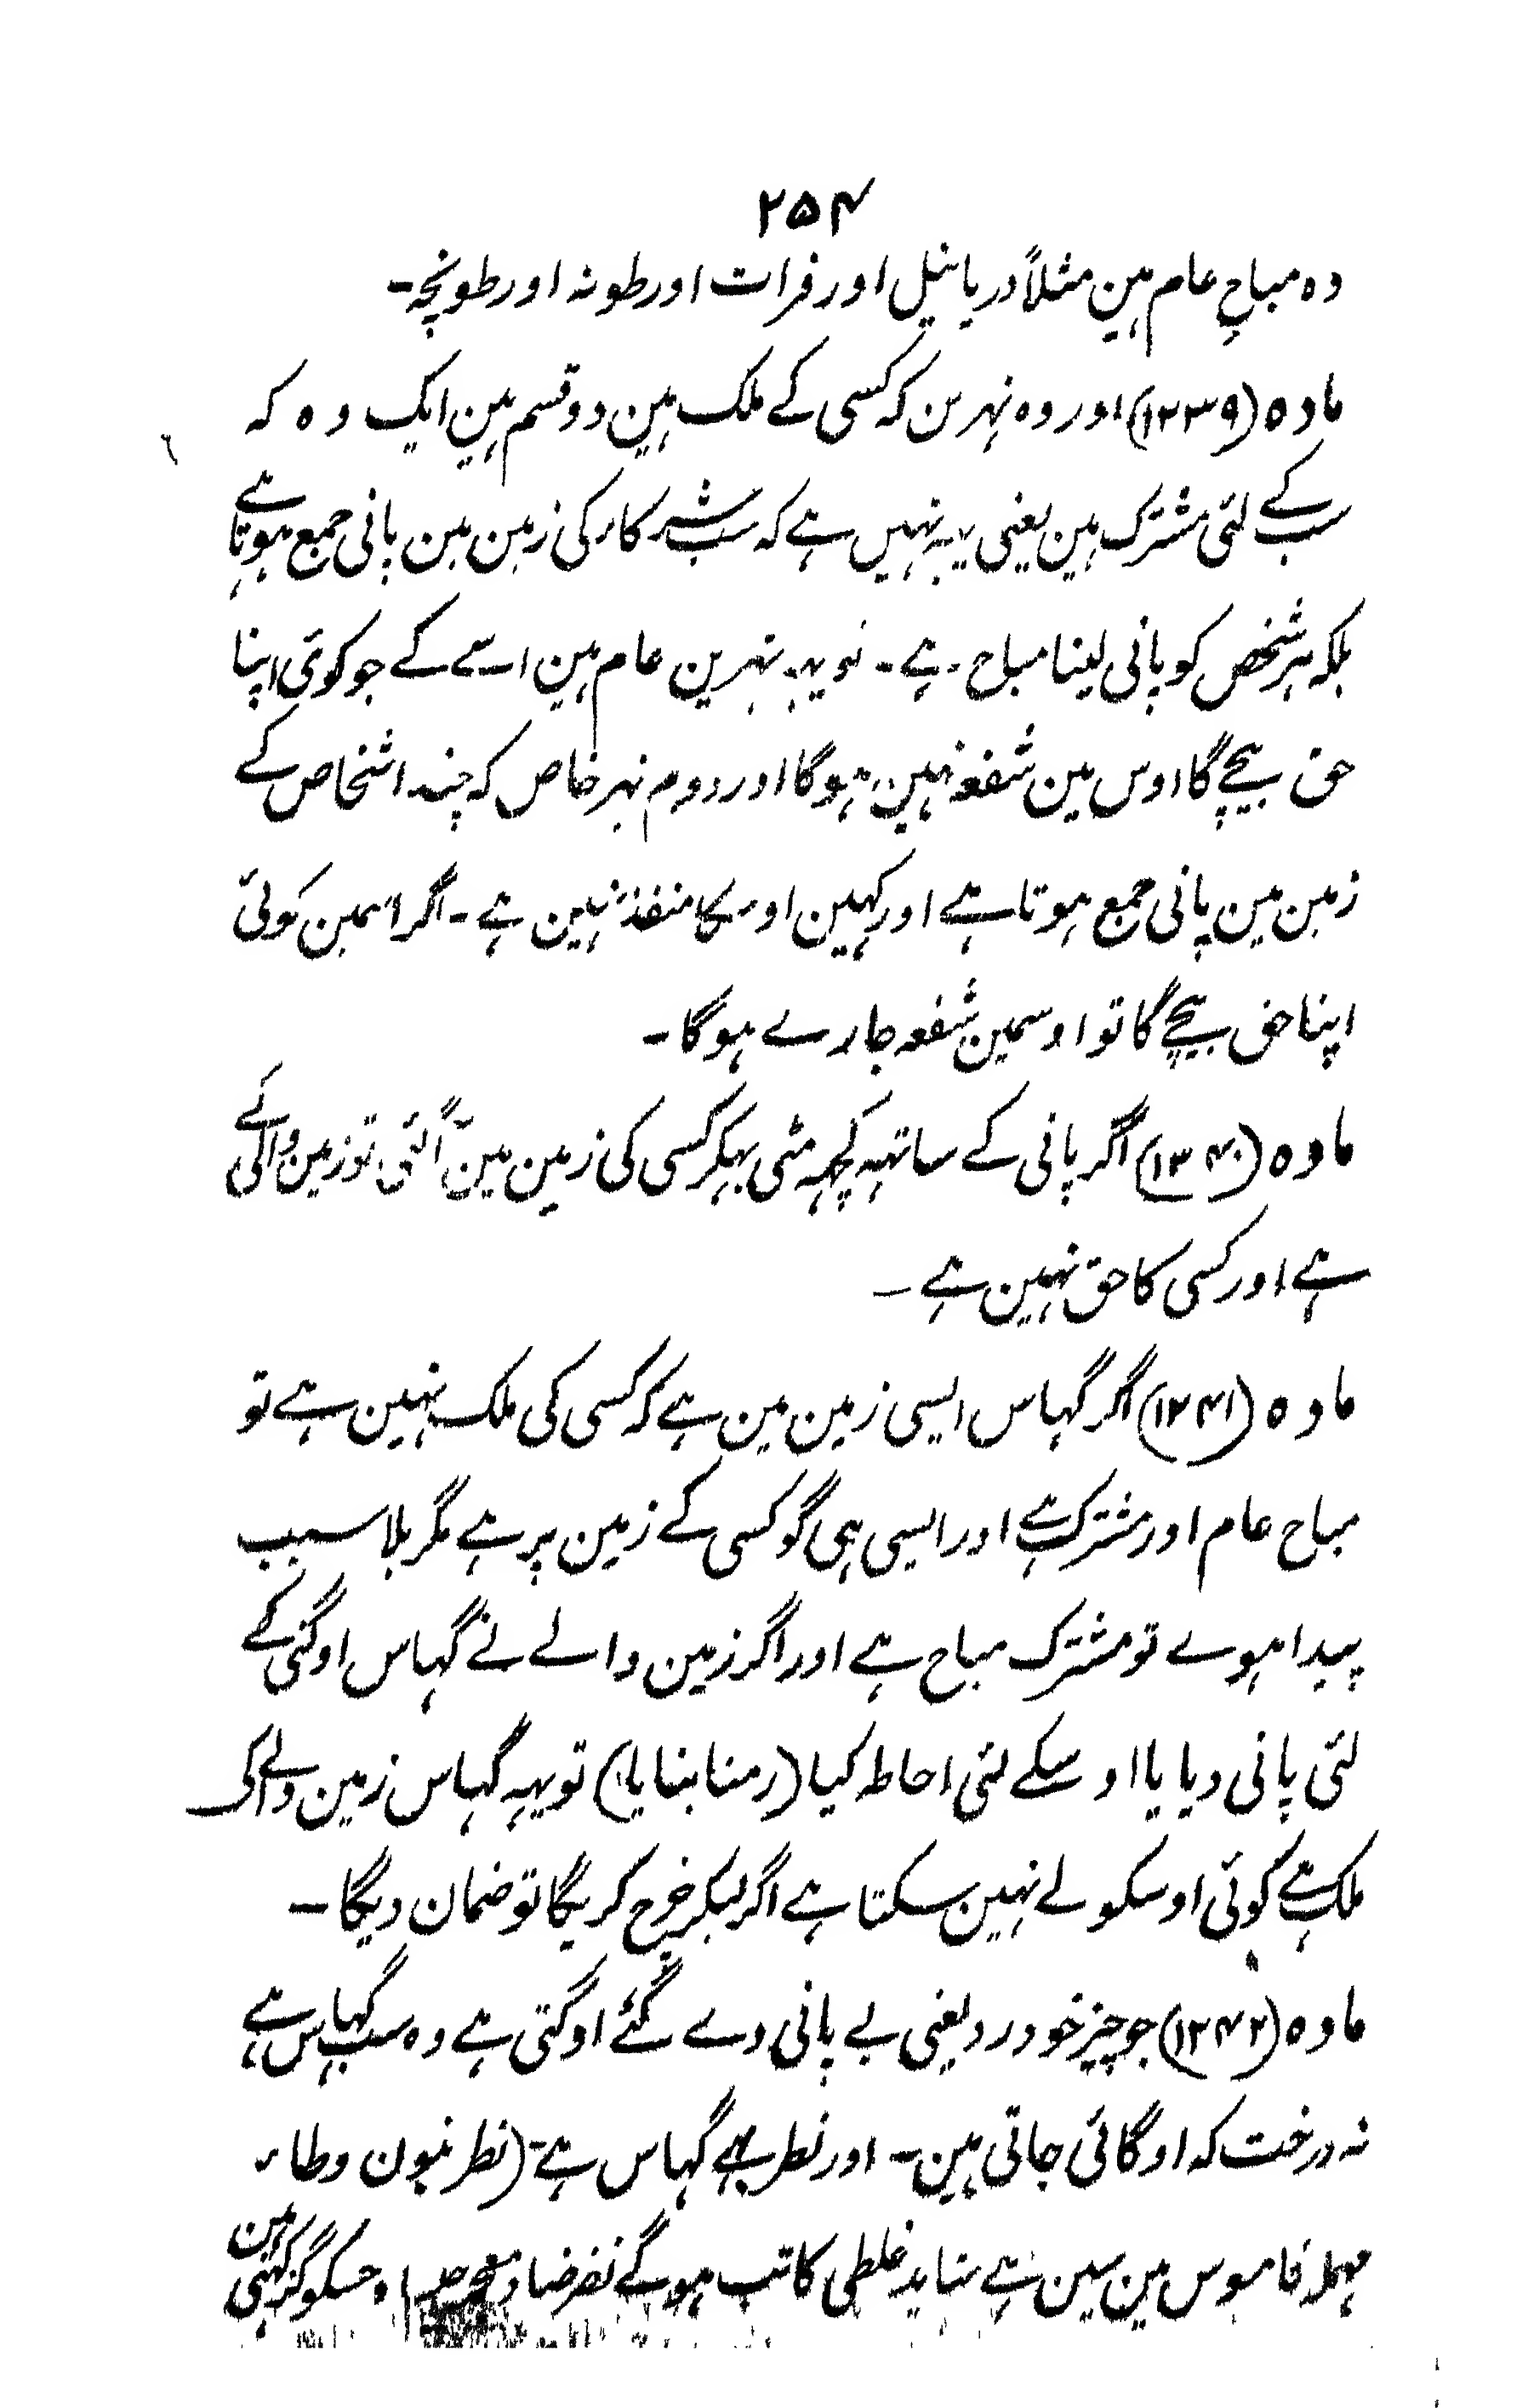 ۲۵۴
وہ مباح عام ہین مثلاً دریا نیل اور فرات اور طونہ اور طونچہ۔
مادہ (۱۲۳۹) اور وہ نہرین کہ کسی کے ملک ہین دو قسم ہین ایک وہ کہ
سب کے لئی مشترک ہین یعنی یہہ نہیں ہے کہ سب شرکار کی زمین مین پانی جمع ہوتا ہے
بلکہ ہر شخص کو پانی لینا مباح ہے۔ تو یہہ نہرین عام ہین اسے کے جو کوئی اپنا
حق بیچے گا اوس مین شفعہ نہین ہوگا اور دوم نہر خاص کہ چند اشخاص کے
زمین مین پانی جمع ہوتا ہے اور کہین اوسکا منفذ نہین ہے۔ اگر اسمین کوئی
اپنا حق بیچے گا تو اوسمین شفعہ جارے ہوگا۔
مادہ (۱۳۴۰) اگر پانی کے ساتہہ کچہہ مٹی بہکر کسی کی زمین مین آگئی تو زمین والے کی
ہے اور کسی کا حق نہین ہے۔
مادہ (۱۲۴۱) اگر گہاس ایسی زمین مین ہے کہ کسی کی ملک نہین ہے تو
مباح عام اور مشترک ہے اور ایسی ہی گو کسی کے زمین پر ہے مگر بلا سبب
پیدا ہوے تو مشترک مباح ہے اور اگر زمین والے نے گہاس اوگنی کے
لئی پانی دیا یا اوسکے لئی احاطہ کیا (رمنا بنایا) تو یہہ گہاس زمین والے کی
ملک ہے کوئی اوسکو لے نہین سکتا ہے اگر لیکر خرچ کریگا تو ضمان دیگا۔
مادہ (۱۲۴۲) جو چیز خود رد یعنی بے پانی دے گئے اوگتی ہے وہ سب گہاس ہے
نہ درخت کہ اوگائی جاتی ہین۔ اور نطر بہے گہاس ہے۔ (نطر بنون وطاء
مہملہ قاموس مین سین ہے شاید غلطی کاتب ہوگے نضر ضاد معجمہ جسکو گز کہتی ہین